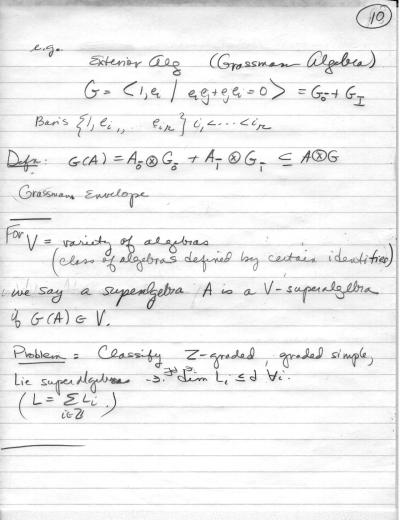 10
e.g.
Exterior Alg (Grassman Algebra)
G = <1, e_i | e_i e_j + e_j e_i = 0> = G_0̄ + G_1̄
Basis {1, e_i₁, ... e_iᵣ} i₁ < ... < iᵣ
Defn: G(A) = A_0̄ ⊗ G_0̄ + A_1̄ ⊗ G_1̄ ⊆ A ⊗ G
Grassman Envelope
For V = variety of algebras
(class of algebras defined by certain identities)
we say a superalgebra A is a V-superalgebra
if G(A) ∈ V.
Problem: Classify Z-graded, graded simple,
Lie superalgebras ∋ dim L_i ≤ d ∀i.
(L = Σ L_i.)
i∈Z